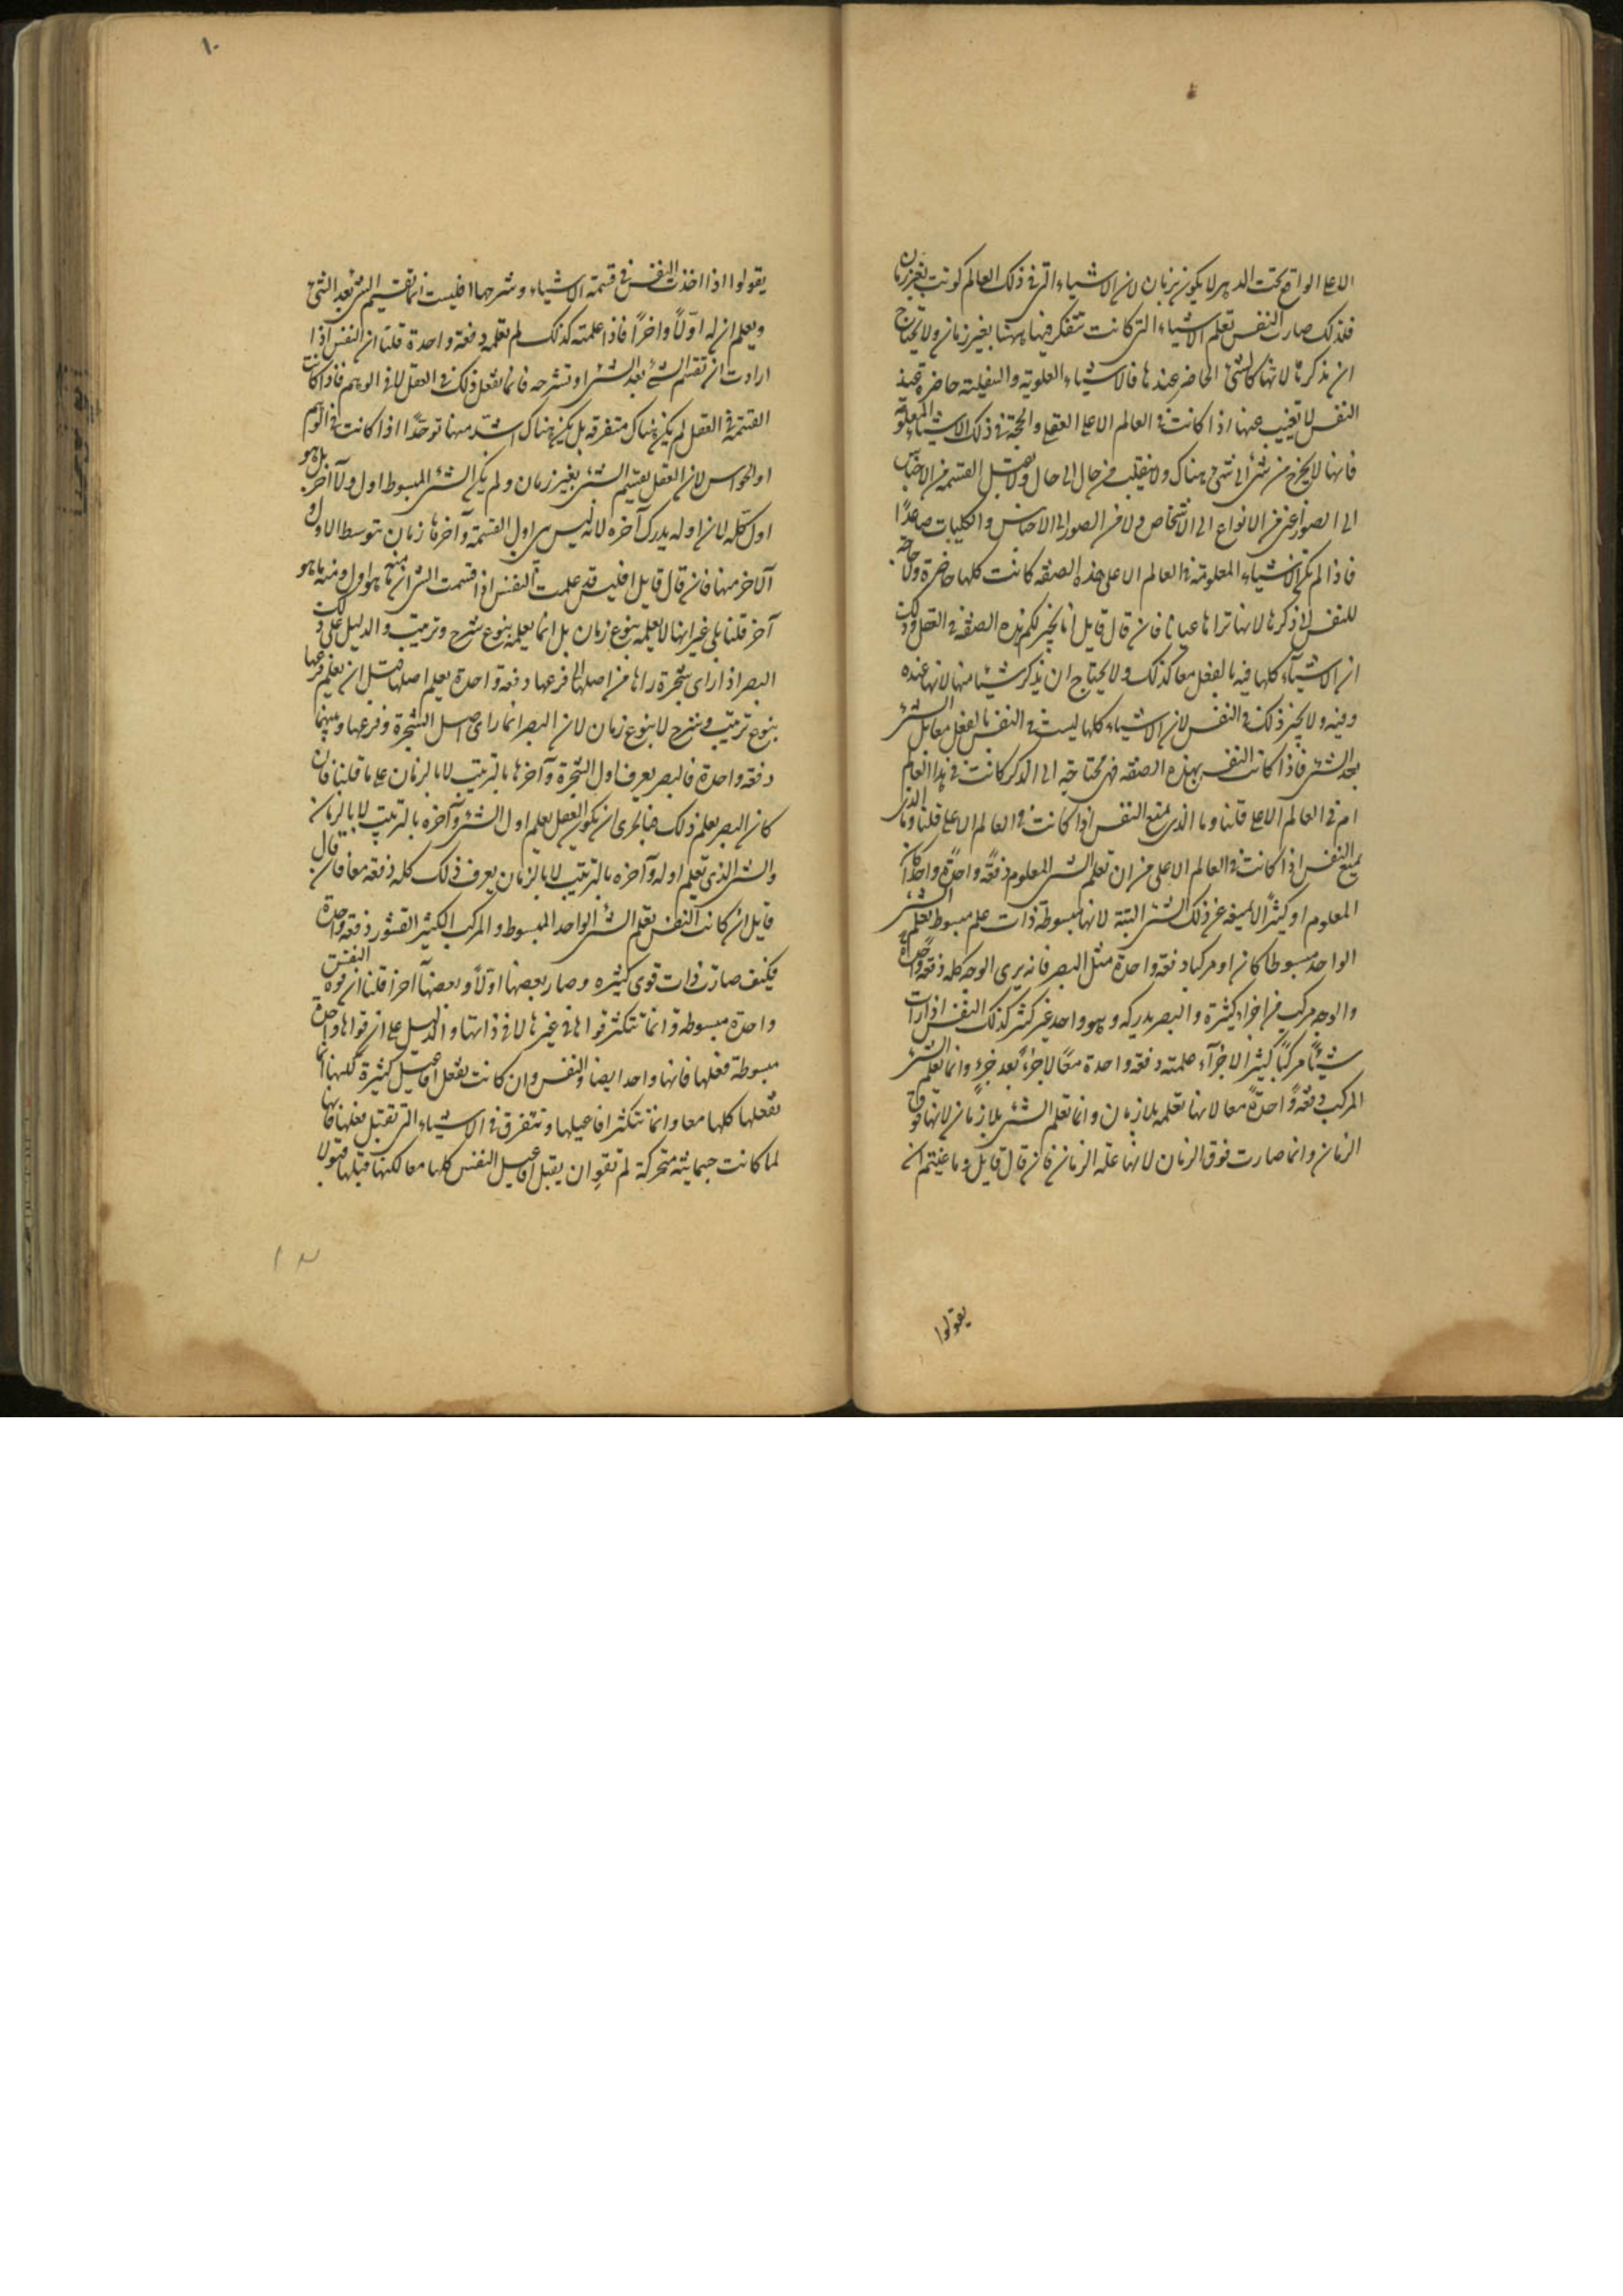 الاعلى الواقع تحت الدهر لا يكون بزمان لان الاشياء التى فى ذلك العالم كونت بغير زمان
فلذلك صارت النفس تعلم الاشياء التى كانت تتفكر فيها ههنا بغير زمان ولا تحتاج
ان تذكرها لانها كالشئ الحاضر عندها فالاشياء العلوية والسفلية حاضرة عند
النفس لا تغيب عنها اذا كانت فى العالم الاعلى العقلى والحجة فى ذلك الاشياء المعلومة
فانها لا يخرج من شئ الى شئ هناك ولا ينقلب من حال الى حال ولا يقبل القسمة من الاجناس
الى الصور اعنى من الانواع الى الاشخاص ولا من الصور الى الاجناس والكليات صاعدًا
فاذا لم تكن الاشياء المعلومة فى العالم الاعلى بهذه الصفة كانت كلها حاضرة ولا حاجة
للنفس الى ذكرها لانها تراها عيانا فان قال قايل انا نجيز لكم هذه الصفة فى العقل وذلك
ان الاشياء كلها فيه بالفعل معا كذلك ولا يحتاج ان يذكر شيئا منها لانها عنده
وفيه ولا نجيز ذلك فى النفس لان الاشياء كلها ليست فى النفس بالفعل معا بل الشئ
بعد الشئ فاذا كانت النفس بهذه الصفة فهى محتاجة الى الذكر كانت فى هذا العالم
ام فى العالم الاعلى قلنا وما الذى يمنع النفس اذا كانت فى العالم الاعلى قلنا وما الذى
يمنع النفس اذا كانت فى العالم الاعلى من ان تعلم الشئ المعلوم دفعةً واحدةً واحدًا كان
المعلوم او كثيرًا لا يمنعه عن ذلك الشئ البتة لانها مبسوطة ذات علم مبسوط تعلم الشئ
الواحد مبسوطا كان او مركبا دفعة واحدة مثل البصر فانه يرى الوجه كله دفعة واحدة
والوجه مركب من اجزاء كثيرة والبصر يدركه وهو واحد غير كثير كذلك النفس اذا رات
شيئًا مركبًا كثير الاجزآء علمته دفعة واحدة معًا لا جزءً بعد جزءٍ وانما تعلم الشئ
المركب دفعةً واحدةً معا لانها تعلمه بلا زمان وانما تعلم الشئ بلا زمان لانها فوق
الزمان وانما صارت فوق الزمان لانها علة الزمان فان قال قايل وما عنيتم ان
يقولوا
١٠
يقولوا اذا اخذت النفس فى قسمة الاشياء وشرحها افليست انما تقسم الشئ بعد الشئ
ويعلم ان له اولًا واخرًا فاذا علمته كذلك لم تعلمه دفعة واحدة قلنا ان النفس اذا
ارادت ان تقسم الشئ بعد الشئ او تشرحه فانما تفعل ذلك فى العقل لا فى الوهم فاذا كانت
القسمة فى العقل لم يكن هناك متفرقه بل يكن هناك اشد منها توحدًا اذا كانت فى الوهم
او الحواس لان العقل يقسم الشئ بغير زمان ولم يكن الشئ المبسوط اول ولا آخر بل هو
اول كله لان اوله يدرك آخره لانه ليس بين اول القسمة وآخرها زمان يتوسط الاول و
الآخر منها فان قال قايل افليس قد علمت النفس اذا قسمت الشئ ان منه ما هو اول ومنه ما هو
آخر قلنا بلى غير انها لا يعلمه بنوع زمان بل انما يعلمه بنوع شرح وترتيب والدليل على ذلك
البصر اذا راى شجرة راها من اصلها الى فرعها دفعة واحدة يعلم اصلها قبل ان يعلم فرعها
بنوع ترتيب وشرح لا بنوع زمان لان البصر انما راى اصل الشجرة وفرعها وبينهما
دفعة واحدة فالبصر يعرف اول الشجرة وآخرها بالترتيب لا بالزمان على ما قلنا فان
كان البصر يعلم ذلك فبالحرى ان يكون العقل يعلم اول الشئ وآخره بالترتيب لا بالزمان
والشئ الذى تعلم اوله وآخره بالترتيب لا بالزمان يعرف ذلك كله دفعة معا فان قال
قايل ان كانت النفس تعلم الشئ الواحد المبسوط والمركب الكثير القشور دفعة واحدة
فكيف صارت ذات قوى كثيره وصار بعضها اولًا وبعضها آخرا قلنا ان قوة النفس
واحدة مبسوطة وانما تتكثر قواها فى غيرها لا فى ذاتها والدليل على ان قواها واحدة
مبسوطة فعلها فانها واحد ايضا والنفس وان كانت تفعل افاعيل كثيرة لكنها انما
تفعلها كلها معا وانما تتكثر افاعيلها وتتفرق فى الاشياء التى تقبل فعلها فانها
لما كانت جسمانية متحركة لم تقو ان يقبل افاعيل النفس كلها معا لكنها قبلتها قبولا